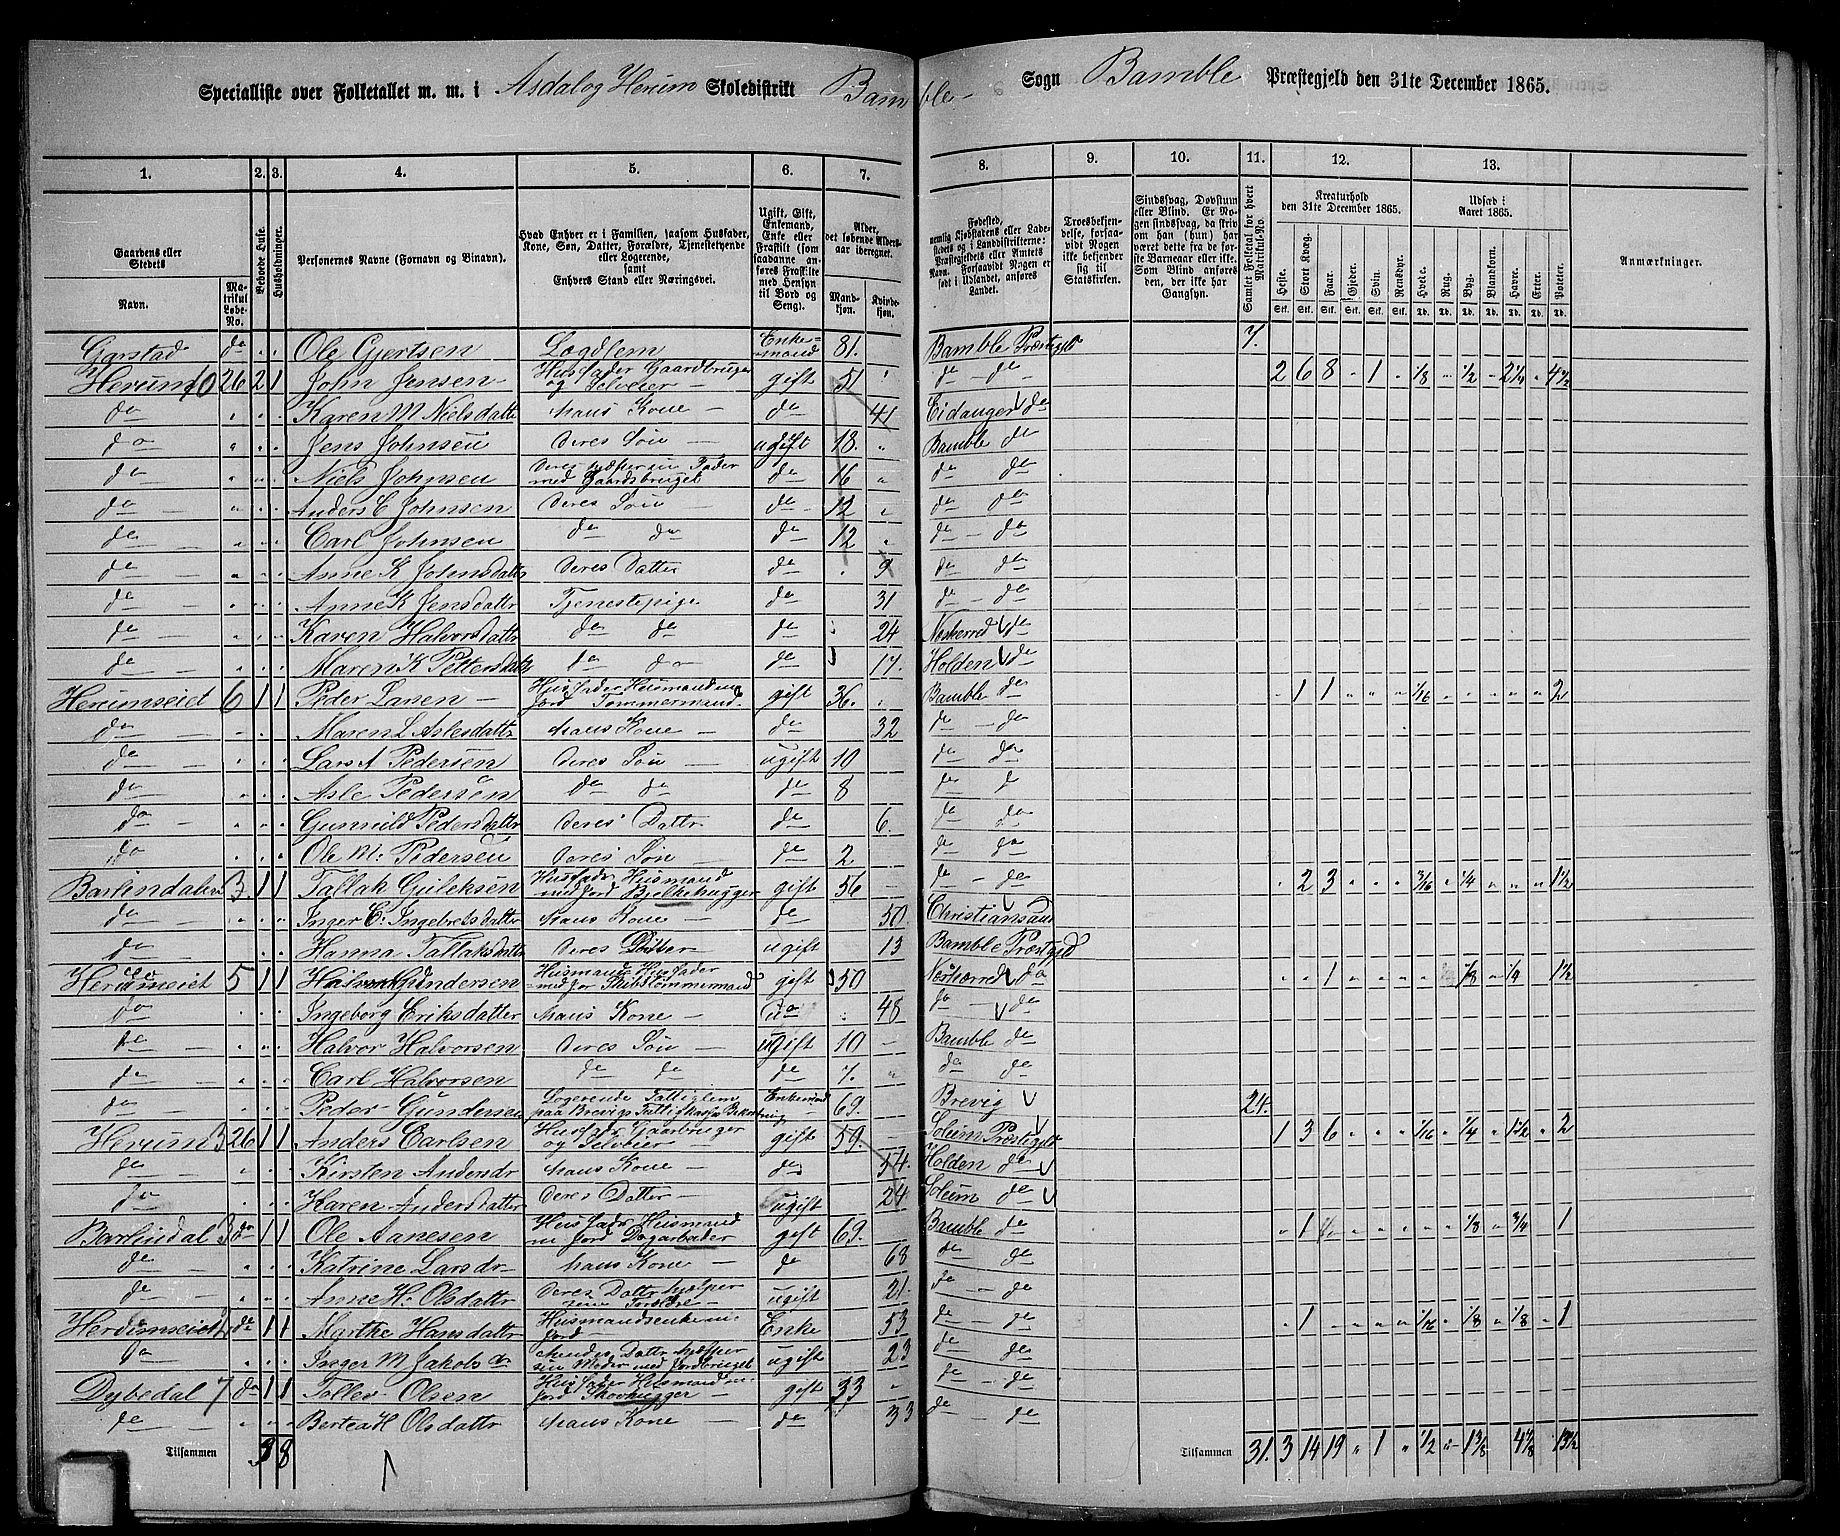 Specialliste over Folketallet m. m. i Asdal og Herum Skoledistrikt Bamble Sogn Bamble Præstegjeld den 31te December 1865.
1. 2. 3. 4. 5. 6. 7. 8. 9. 10. 11. 12. 13.
Gaardens eller Stedets Navn. Matrikul Løbe-No. Beboede Huse. Husholdninger. Personernes Navne (Fornavn og Binavn). Hvad Enhver er i Familien, saasom Husfader, Kone, Søn, Datter, Forældre, Tjenestetyende eller Logerende, samt Enhvers Stand eller Næringsvei. Ugift, Gift, Enkemand, Enke eller Fraskilt (saadanne anføres Fraskilte med Hensyn til Bord og Seng). Alder, det løbende Aldersaar iberegnet. Mandkjøn. Kvindekjøn.
Fødested, nemlig Kjøbstadens eller Ladestedets og i Landdistrikterne: Præstegjeldets eller Amtets Navn. Forsaavidt Nogen er født i Udlandet, anføres Landet. Troesbekjendelse, forsaavidt Nogen ikke bekjender sig til Statskirken. Sindssvag, Døvstum eller Blind. Samlet Folketal for hvert Matrikul-No. Kreaturhold den 31te December 1865. Udsæd i Aaret 1865. Anmærkninger.
Heste. Stort Kvæg. Faar. Gjeder. Svin. Rensdyr. Hvede. Rug. Byg. Blandkorn. Havre. Erter. Poteter.
Gjerstad do Ole Gjertsen Logdlem Enkemand 81. Bamble Præstegjeld 7.
Herum 10 26 2 1 John Jensen Husfader Gaardbruger og Selveier gift 51 do - do 2 6 8 - 1 - 1/8 - 1/2 - 2 1/4 - 4 1/2
do Karen M Nielsdattr Mans Kone do 41 Eidanger do
do Jens Johnsen Deres Søn ugift 18. Bamble do
do Niels Johnsen med Gaardsbruget do 16 do do
do Anders C Johnsen Deres Søn do 12 do do
do Carl Johnsen do do do 12 do - do
do Anne K Johnsdattr Deres Datter do 9 do do
do Anne K Jensdattr Tjenestepige do 31 do - do
do Karen Halvorsdattr do do do 24 do
do Maren K Pettersdattr do do do 17. Holden do
Herumseiet 6 1 1 Peder Larsen Husfader Husmand m Jord Tømmermand gift 36. Bamble do 1 1 1/16 2
do Maren L Aslesdattr Mans Kone do 32 do - do
do Lars A Pedersen Deres Søn ugift 10 do do
do Asle Pedersen do do do 8 do do
do Gunnild Pedersdattr Deres Dattr do 6. do do
do Ole M: Pedersen Deres Søn do 2 do do
Barlindalen 3 1 1 Tallak Gulleksen Husfader Husmand med Jord Bjelkehugger gift 56 do - do 2 3 3/16 1/4 1 1/2
do Inger C: Ingebretsdatter Mans Kone do 50. Christiansand
do Hanna Tallaksdattr Deres Datter ugift 13 Bamble Præstgjd
Herumeiet 5 1 1 Halvor Gundersen Husmand Husfader med Jor Skibstømmermand gift 50 do 1 1/8 1/4 1 1/2
do Ingeborg Eriksdatter Mans Kone do 48 do - do
do Halvor Halvorsen Deres Søn ugift 10 Bamble do
do Carl Halvorsen do do do 7. do do
do Peder Gundersen Logerende Fattiglem paa Brevigs Fattigkasse Bekostning Enkemand 69. Brevig 24.
Herum 3 26 1 1 Anders Carlsen Husfadr Gaardbruger og Selveier gift 59. Solum Præstegjeld 1 3 6 1/16 1/4 1 1/2 2
do Kirsten Andersdr Mans Kone do 54. Holden do
do Karen Andersdatter Deres Datter ugift 24 Solum do
Barlindal 3 do 1 1 Ole Aanesen Husfadr Husmand m Jord Dagarbeder gift 69. Bamble do 1 1/8 3/4 1
do Katrine Larsdr Mans Kone do 68 do - do
do Anne H: Olsdattr Deres Dattr hjelper sine Foreldre ugift 21. do - do
Herumseiet do 1 1 Marthe Hansdattr Husmandsenke m Jord Enke 53 do - do 1 1/16 1/8 1/8 1
do Inger M Jakobsdr Hendes Dattr hjelper sin Moder med Jordbruget ugift 23 do do
Dybedal 7 do 1 1 Tollev Olsen Husfader Husmand m Jord Skovhugger gift 33 do - do
do Bertea H Olsdattr Mans Kone do 33 do - do
Tilsammen 38 Tilsammen 31. 3 14 19 " 1 " 1/2 - 1 3/8 4 7/8 13 1/2